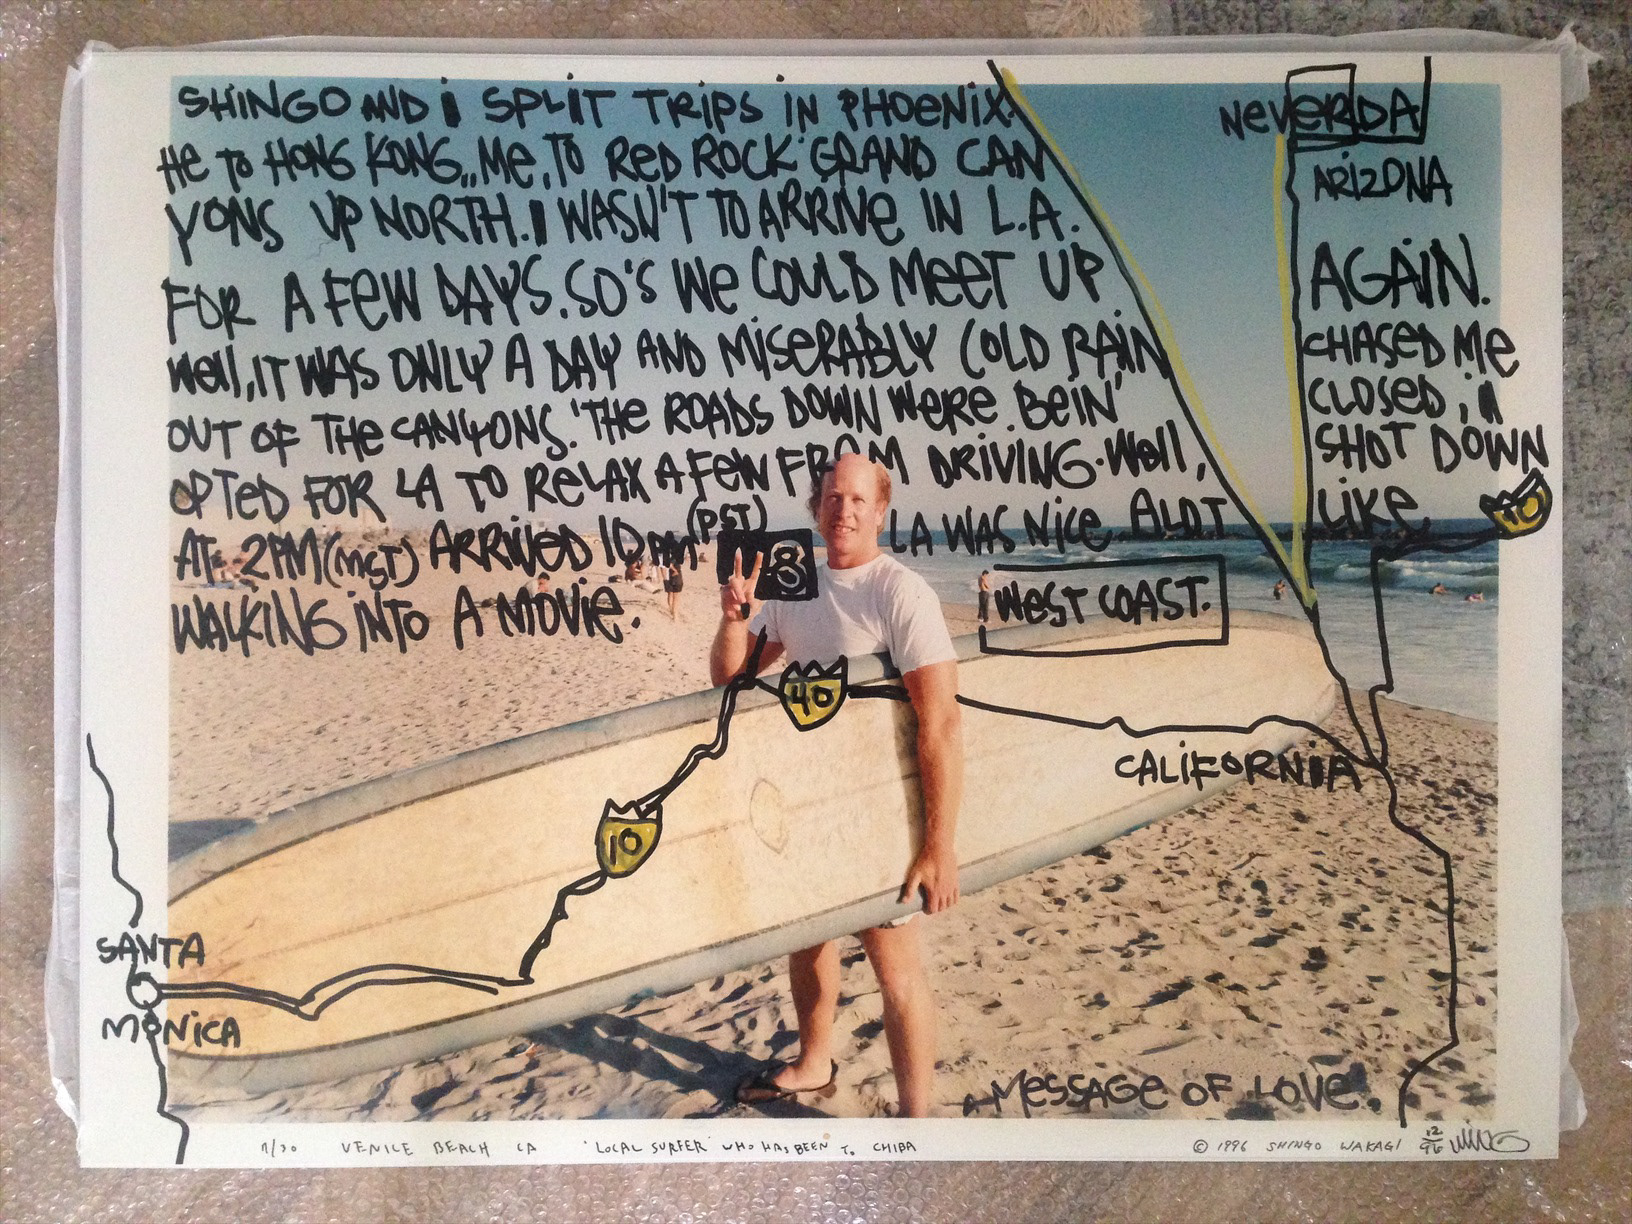 SHINGO AND i SPLIT TRIPS IN PHOENIX.
HE TO HONG KONG,, ME, TO RED ROCK GRAND CAN
YONS UP NORTH. I WASN'T TO ARRIVE IN L.A.
FOR A FEW DAYS. SO'S WE COULD MEET UP
Well, IT WAS ONLY A DAY AND MISERABLY COLD RAIN
OUT OF THE CANYONS. 'THE ROADS DOWN WERE BEIN'
OPTED FOR LA TO RELAX A FEW FROM DRIVING. Well,
AT 2PM (MST) ARRIVED 10PM (PST) LA WAS NICE ALOT
WALKING INTO A MOVIE.
NEVERDA
ARIZONA
AGAIN.
CHASED ME
CLOSED; I
SHOT DOWN
LIKE
40
8
WEST COAST.
40
CALIFORNIA
10
SANTA
MONICA
MESSAGE OF LOVE.
VENICE BEACH CA 'LOCAL SURFER' WHO HAS BEEN TO CHIBA
© 1996 SHINGO WAKAGI 12/96